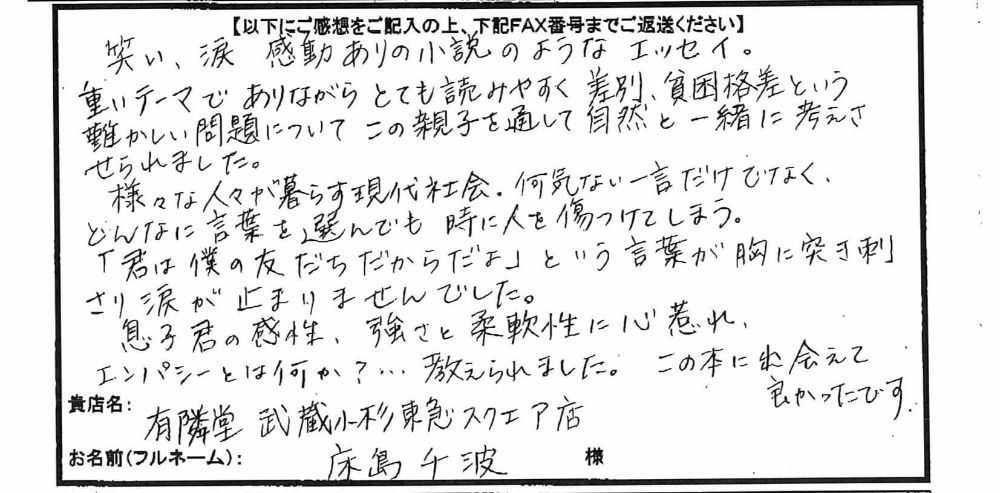 【以下にご感想をご記入の上、下記FAX番号までご返送ください】
笑い、涙 感動ありの小説のようなエッセイ。
重いテーマでありながらとても読みやすく差別、貧困格差という
難かしい問題についてこの親子を通して自然と一緒に考えさ
せられました。
様々な人々が暮らす現代社会。何気ない一言だけでなく、
どんなに言葉を選んでも時に人を傷つけてしまう。
「君は僕の友だちだからだよ」という言葉が胸に突き刺
さり涙が止まりませんでした。
息子君の感性、強さと柔軟性に心惹れ、
エンパシーとは何か?…教えられました。この本に出会えて
良かったです。
貴店名: 有隣堂 武蔵小杉東急スクエア店
お名前(フルネーム): 床島千波 様